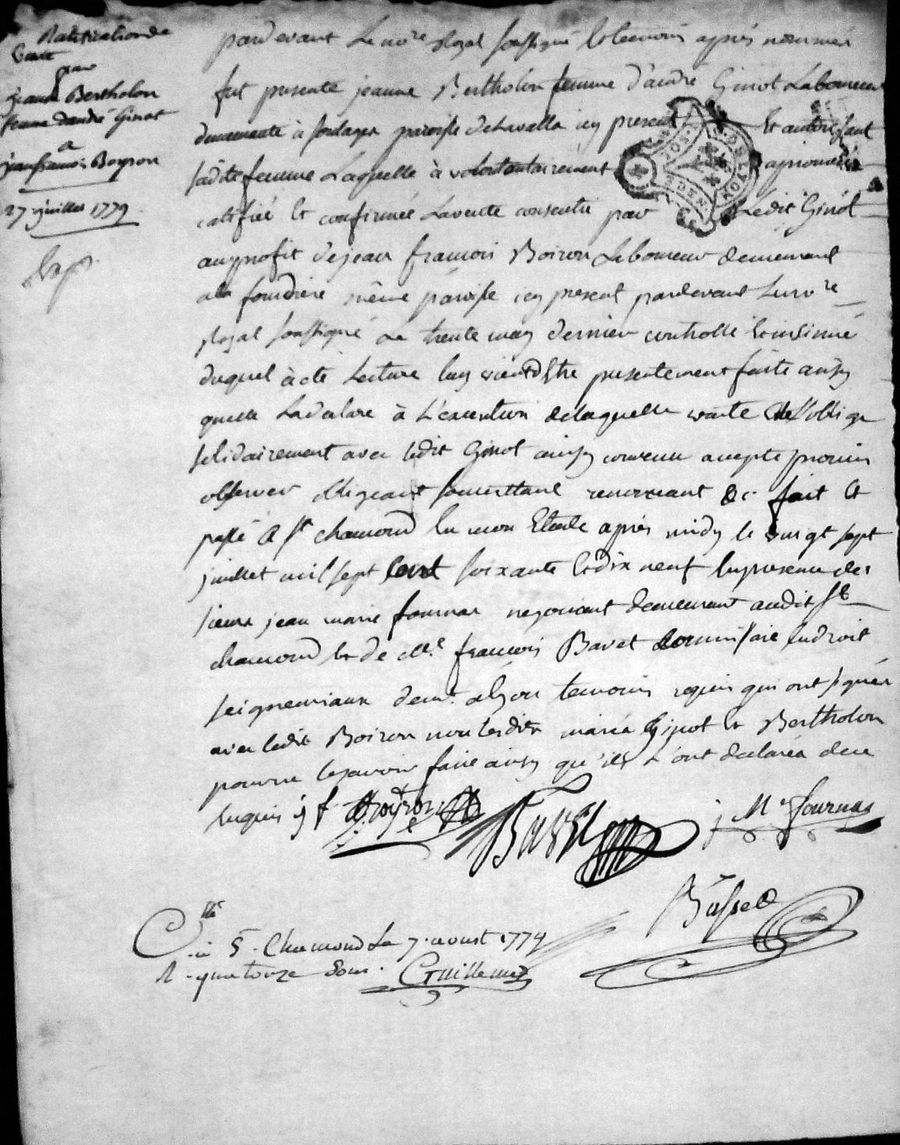 Ratification de
vente
par
jeanne Bertholon
femme d'andré Ginot
a
jean francois Boyron
27 juillet 1779
pardevant Le no.re Royal soussigné & temoins après nommés
fut presente jeanne Bertholon femme d'andré Ginot Laboureur
demeurante à soulages paroisse de Lavalla icy present Et autorisant
sadite femme Laquelle à volontairement approuvé
ratifié Et confirmée La vente consentie par Ledit Ginot
au profit de jean francois Boiron Laboureur demeurant
a la fondriere même paroisse icy present pardevant Le no.re
Royal soussigné Le trente may dernier controllé & insinué
duquel à eté Lecture luy vient d'Etre presentement faite ainsy
quelle La declare à L'execution de laquelle vente Elle s'oblige
solidairement avec ledit Ginot ainsy convenu accepté promis
observer obligeant soumettant renoncant &c. fait Et
passé à S.t chamond En mon Etude après midy le vingt sept
juillet mil sept Cent soixante & dix neuf En presence de
sieur jean marie fournas negociant demeurant audit S.t
chamond & de M.e francois Bavet Commissaire En droit
seigneuriaux dem.t aussy temoins requis qui ont signés
avec ledit Boiron non lesdits mariés Ginot Et Bertholon
pour ne le savoir faire ainsy qu'ils L'ont declarés de ce
Enquis j f Boyron
j M.e fournas
Bavet
C.llé à S.t Chamond Le 7 aoust 1779
R. quatorze Sous. Guillemin